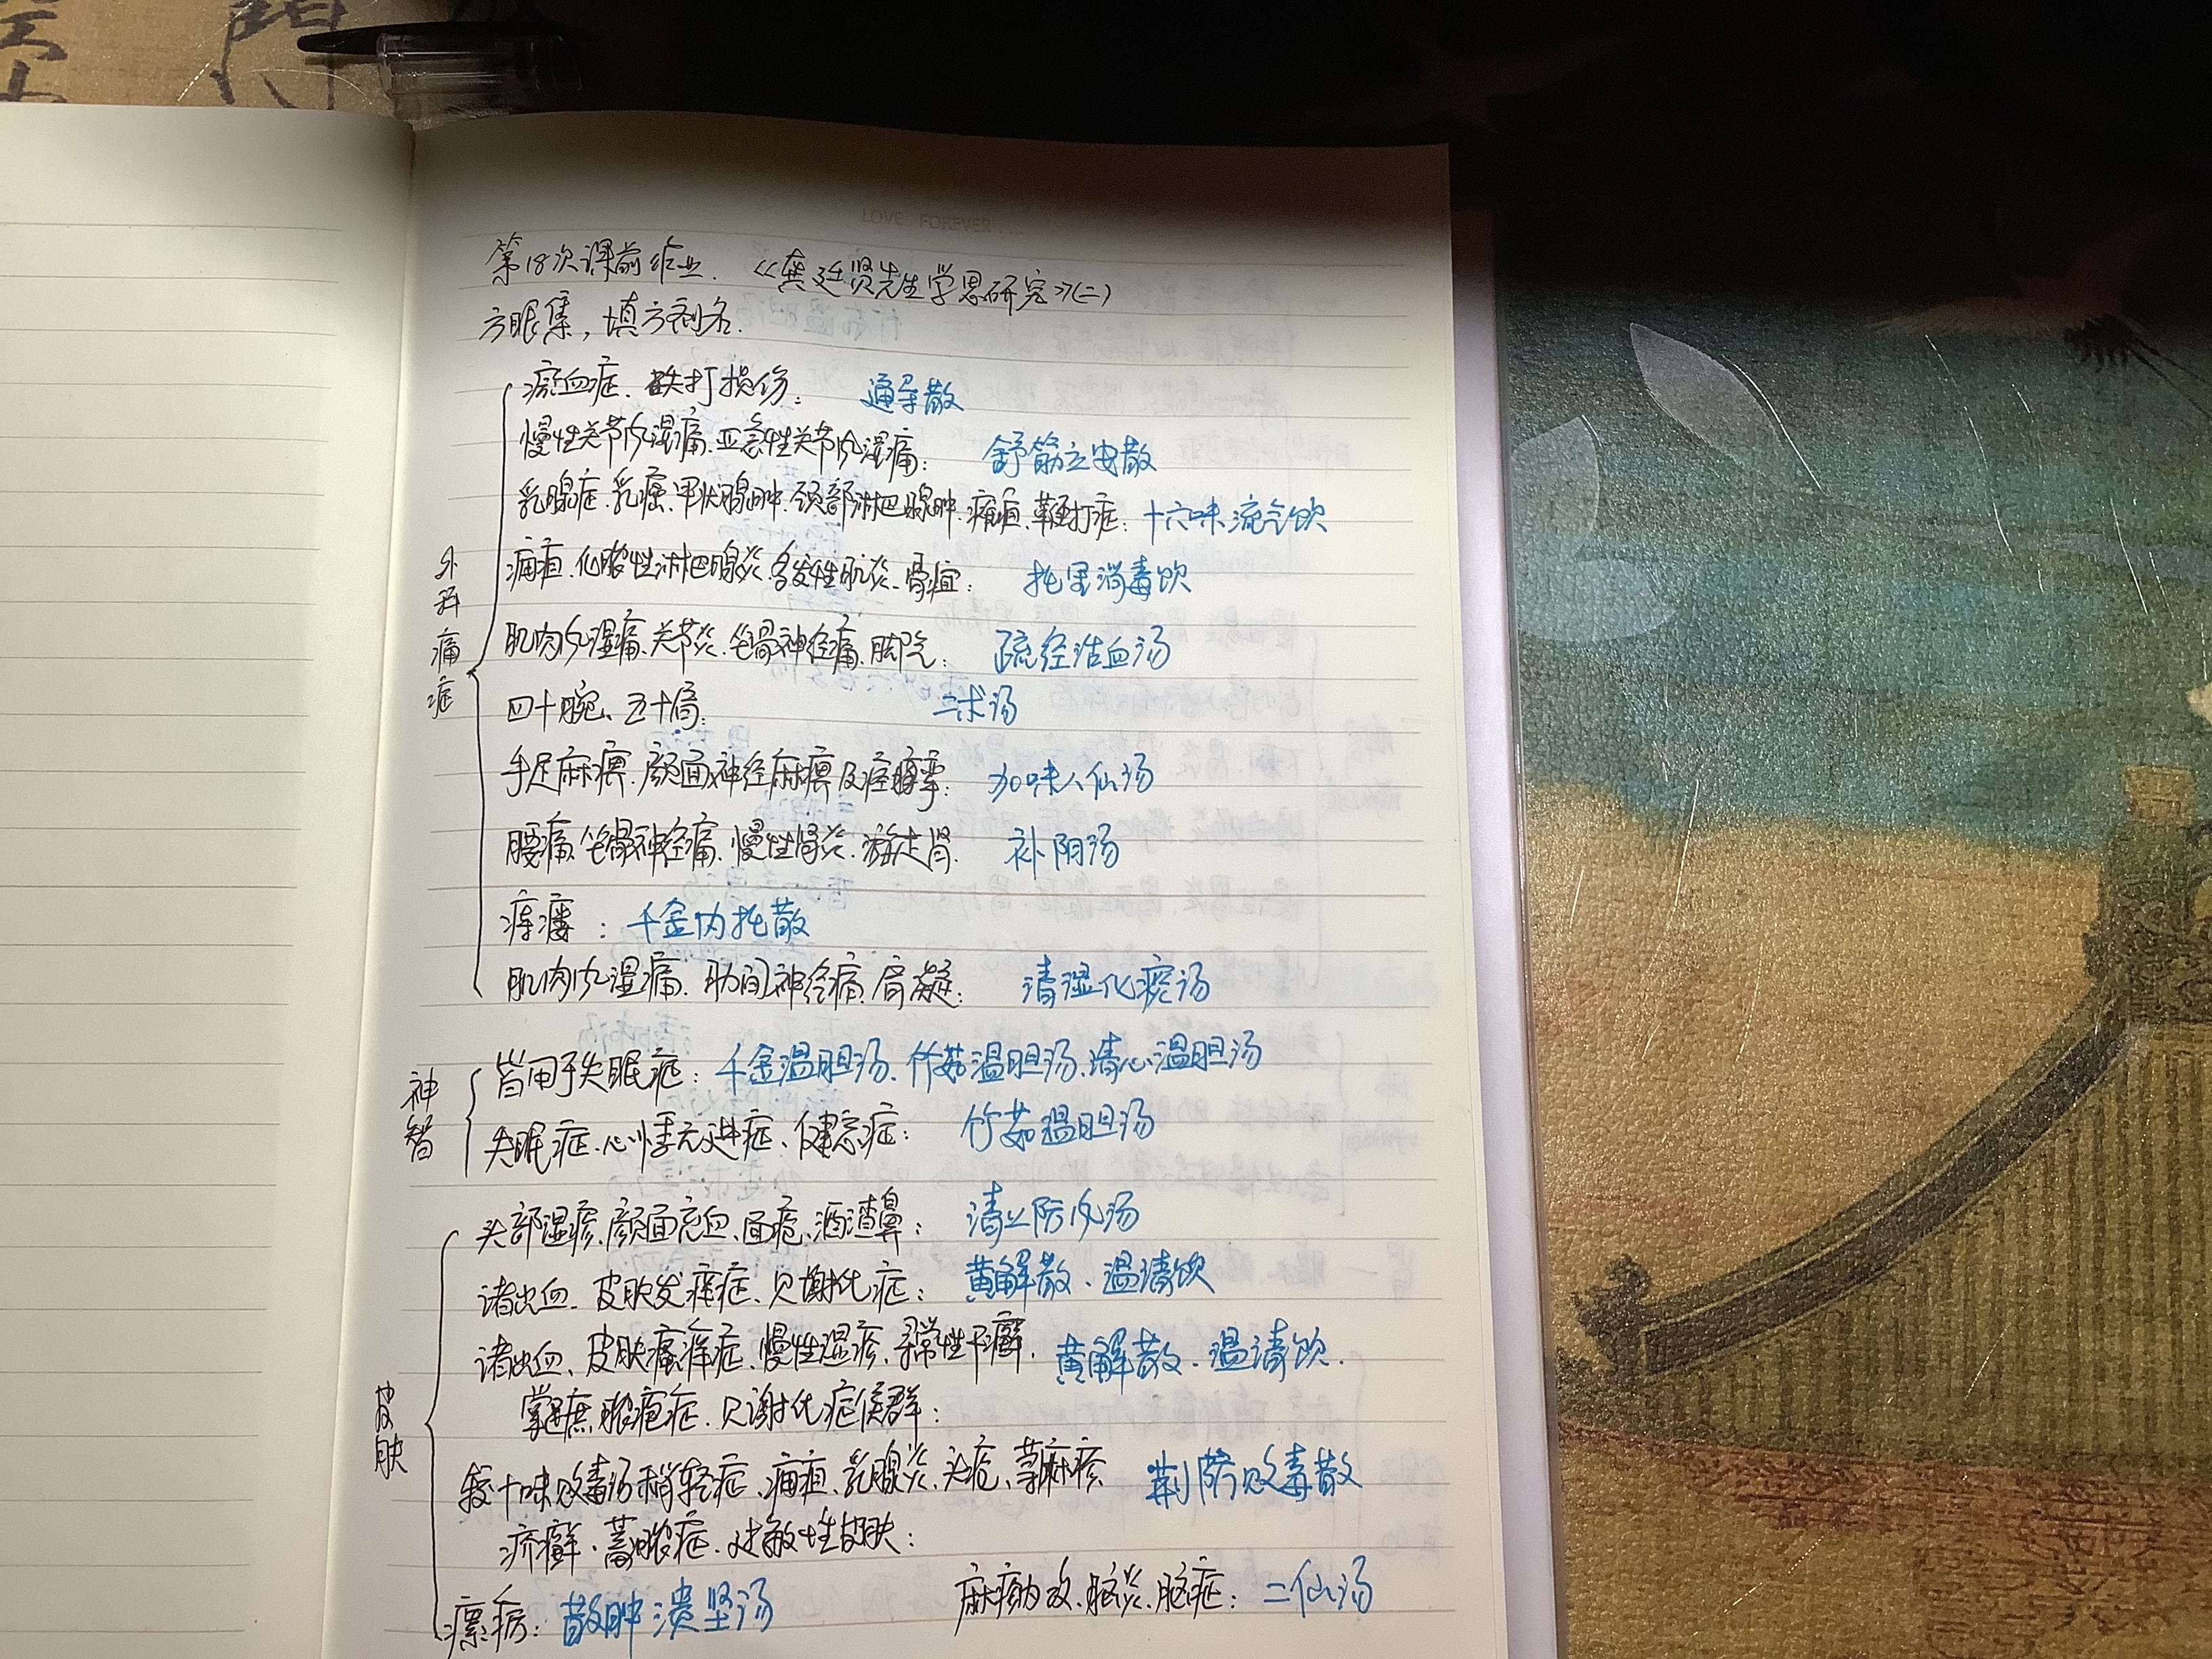 LOVE FOREVER...
第18次课前作业. 《龚廷贤先生学思研究》(二)
方眼集, 填方剂名.
外科痛症
瘀血症、跌打损伤: 通导散
慢性关节风湿痛、亚急性关节风湿痛: 舒筋立安散
乳腺症、乳癌、甲状腺肿、颈部淋巴腺肿、痈疽、鞭打症: 十六味流气饮
痈疽、化脓性淋巴腺炎、多发性肌炎、骨疽: 托里消毒饮
肌肉风湿痛、关节炎、坐骨神经痛、脚气: 疏经活血汤
四十腕、五十肩: 二术汤
手足麻痹、颜面神经麻痹及痉挛: 加味八仙汤
腰痛、坐骨神经痛、慢性肾炎、游走肾. 补阴汤
痔瘘: 千金内托散
肌肉风湿痛、肋间神经痛、肩凝: 清湿化痰汤
神智
皆用于失眠症: 千金温胆汤、竹茹温胆汤、清心温胆汤
失眠症、心悸亢进症、健忘症: 竹茹温胆汤
皮肤
头部湿疹、颜面充血、面疱、酒渣鼻: 清上防风汤
诸出血、皮肤发痒症、贝谢忒症: 黄解散、温清饮
诸出血、皮肤瘙痒症、慢性湿疹、寻常性干癣、 黄解散、温清饮.
掌蹠脓疱症、贝谢忒症候群:
较十味败毒汤稍轻症、痈疽、乳腺炎、头疮、荨麻疹 荆防败毒散
疥癣、蓄脓症、过敏性皮肤:
瘰疬: 散肿溃坚汤
麻疹内攻、脑炎、脑症: 二仙汤